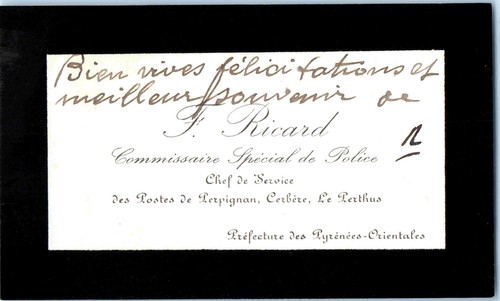 Bien vives félicitations et
meilleur souvenir de
F. Ricard
Commissaire Spécial de Police
Chef de Service
des Postes de Perpignan, Cerbère, Le Perthus
Préfecture des Pyrénées-Orientales